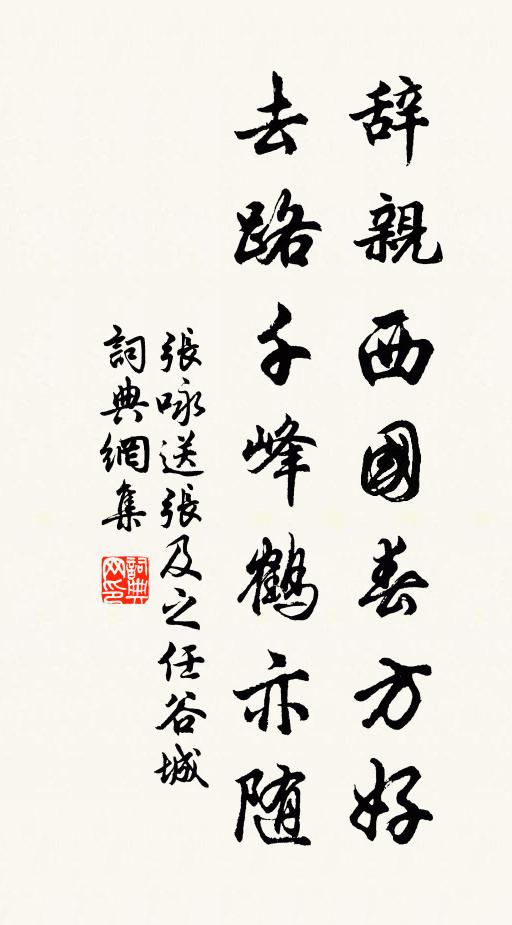 辞親西國春方好
去路千峰鶴亦随
張咏送張及之任谷城
詞典網集
詞典网印